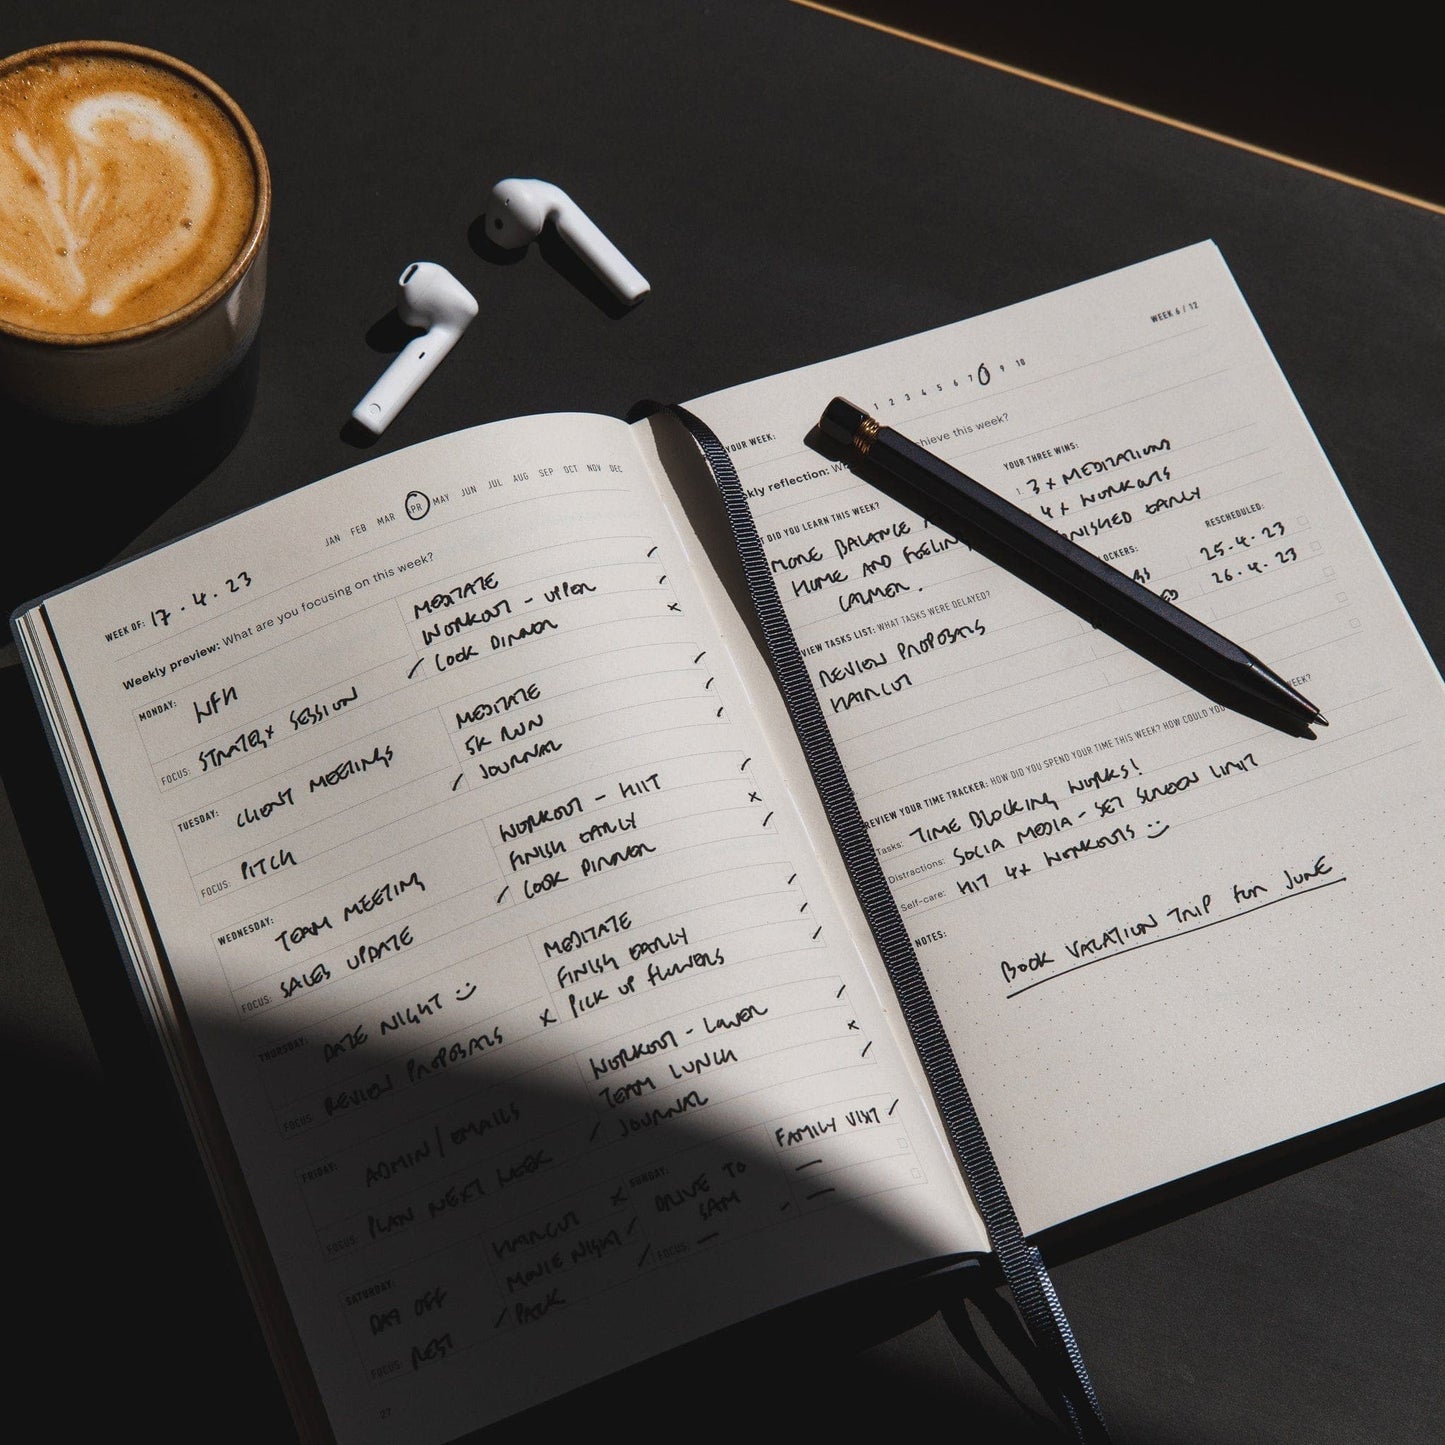 JAN FEB MAR APR MAY JUN JUL AUG SEP OCT NOV DEC
WEEK OF: 17.4.23
Weekly preview: What are you focusing on this week?
MONDAY: WFH
FOCUS: STRATEGY SESSION
MEDITATE
WORKOUT - UPPER
COOK DINNER
TUESDAY: CLIENT MEETINGS
FOCUS: PITCH
MEDITATE
5K RUN
JOURNAL
WEDNESDAY: TEAM MEETING
FOCUS: SALES UPDATE
WORKOUT - HIIT
FINISH EARLY
COOK DINNER
THURSDAY: DATE NIGHT
FOCUS: REVIEW PROPOSALS
MEDITATE
FINISH EARLY
PICK UP FLOWERS
FRIDAY: ADMIN / EMAILS
FOCUS: PLAN NEXT WEEK
WORKOUT - LOWER
TEAM LUNCH
JOURNAL
SATURDAY:
DAY OFF
FOCUS: REST
HAIRCUT
MOVIE NIGHT
PACK
SUNDAY:
DRIVE TO
SAM
FOCUS: —
FAMILY VISIT
27
WEEK 6 / 12
YOUR WEEK: 1 2 3 4 5 6 7 9 10
reflection: this week?
DID YOU LEARN THIS WEEK?
MORE BALANCE
HOME AND
CALMER.
YOUR THREE WINS:
1. 3 x MEDITATIONS
4 x WORKOUTS
FINISHED EARLY
TASKS LIST: WHAT TASKS WERE DELAYED?
REVIEW PROPOSALS
HAIRCUT
RESCHEDULED:
25.4.23
26.4.23
REVIEW YOUR TIME TRACKER: HOW DID YOU SPEND YOUR TIME THIS WEEK? HOW COULD YOU WEEK?
Tasks: TIME BLOCKING WORKS!
Distractions: SOCIA MEDIA - SET SCREEN LIMIT
Self-care: HIT 4x WORKOUTS
NOTES:
BOOK VACATION TRIP FOR JUNE